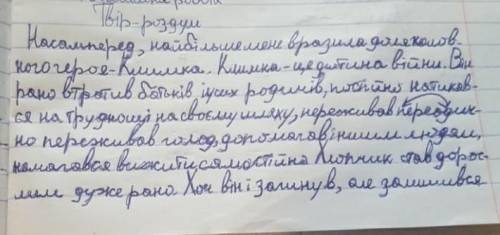 Твір-роздум
Насамперед, найбільше мене вразила доля голов-
ного героя-Климка. Климка-це дитина війни. Він
рано втратив батьків і усіх родичів, постійно натикав-
ся на труднощі на своєму шляху, переживав
но переживав голод, допомагав іншим людям,
намагався вижити самостійно. Хлопчик став дорос-
лим дуже рано. Хоч він і загинув, але залишився